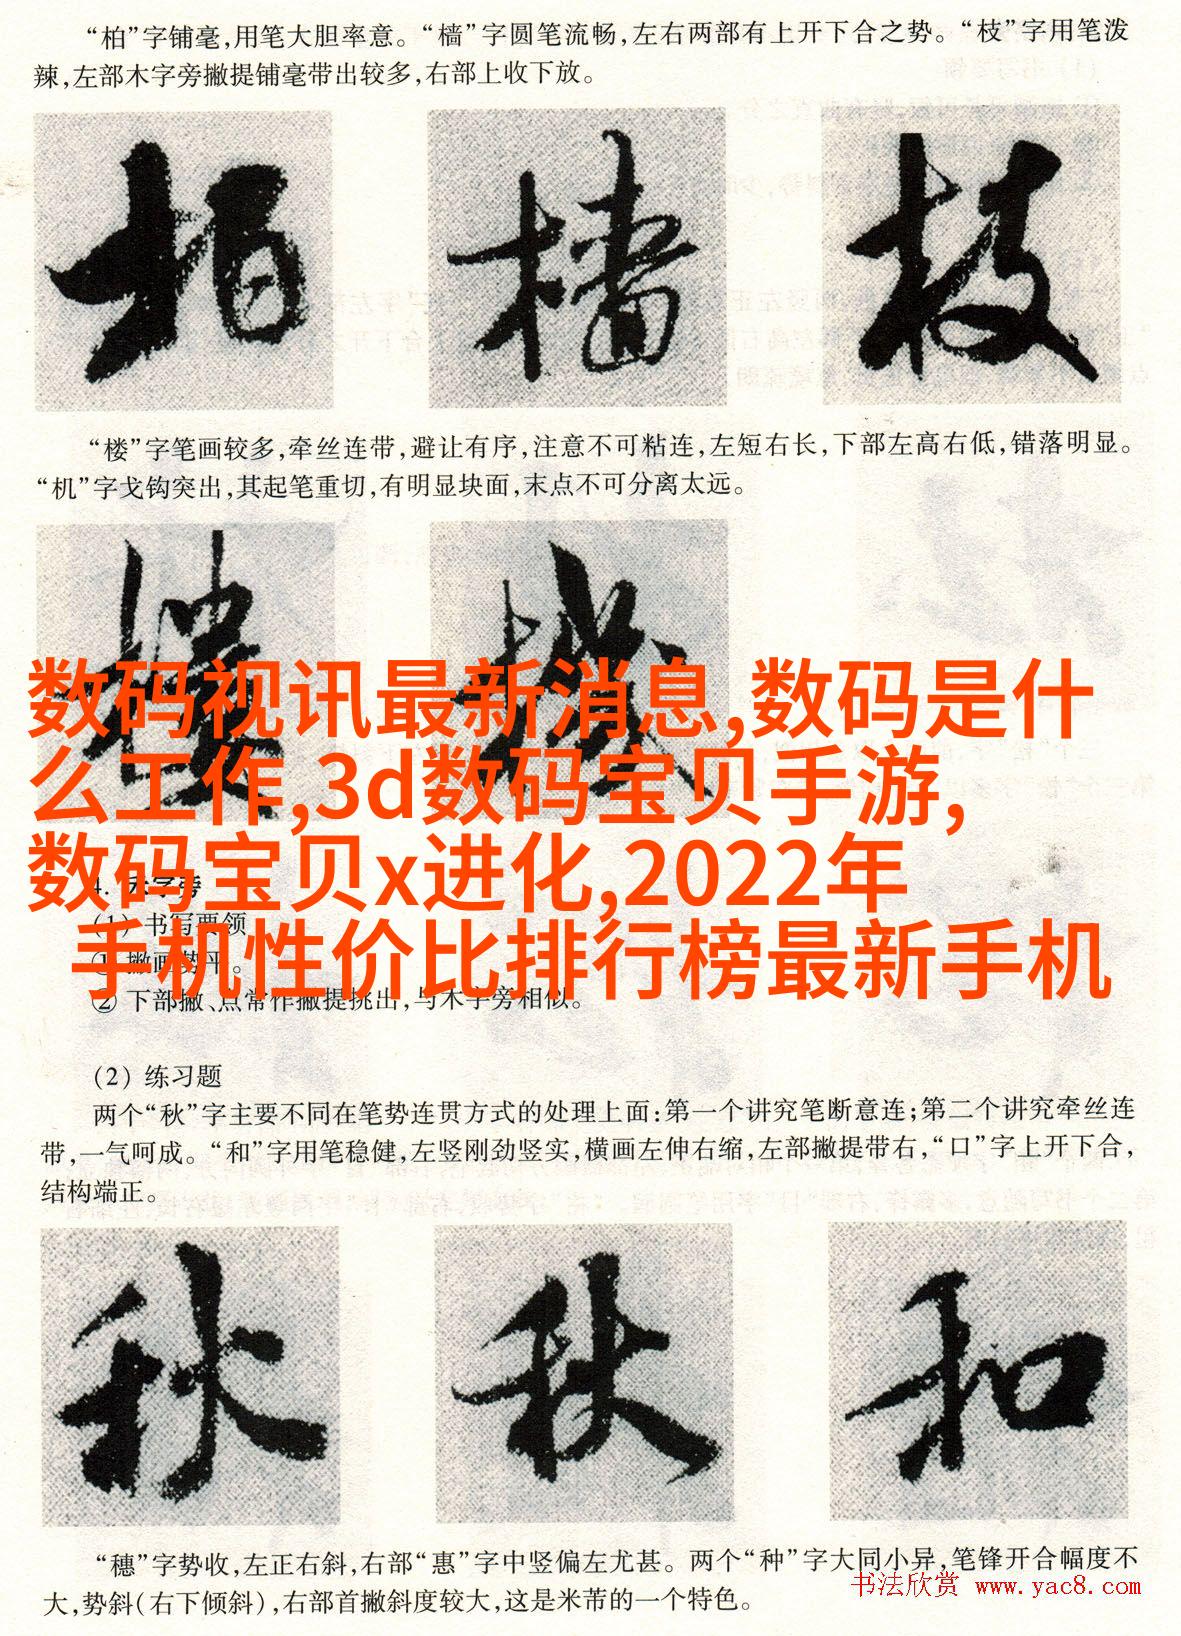 “柏”字铺毫,用笔大胆率意。“樯”字圆笔流畅,左右两部有上开下合之势。“枝”字用笔泼
辣,左部木字旁撇提铺毫带出较多,右部上收下放。
柏 樯 枝
“楼”字笔画较多,牵丝连带,避让有序,注意不可粘连,左短右长,下部左高右低,错落明显。
“机”字戈钩突出,其起笔重切,有明显块面,末点不可分离太远。
楼 機
数码视讯最新消息,数码是什
么工作,3d数码宝贝手游,
数码宝贝x进化,2022年
手机性价比排行榜最新手机
4. 禾字旁
(1) 书写要领
① 撇画势平。
② 下部撇、点常作撇提挑出,与木字旁相似。
(2) 练习题
两个“秋”字主要不同在笔势连贯方式的处理上面:第一个讲究笔断意连;第二个讲究牵丝连
带,一气呵成。“和”字用笔稳健,左竖刚劲竖实,横画左伸右缩,左部撇提带右,“口”字上开下合,
结构端正。
秋 秋 和
“穗”字势收,左正右斜,右部“惠”字中竖偏左尤甚。两个“种”字大同小异,笔锋开合幅度不
大,势斜(右下倾斜),右部首撇斜度较大,这是米芾的一个特色。
书法欣赏 www.yac8.com